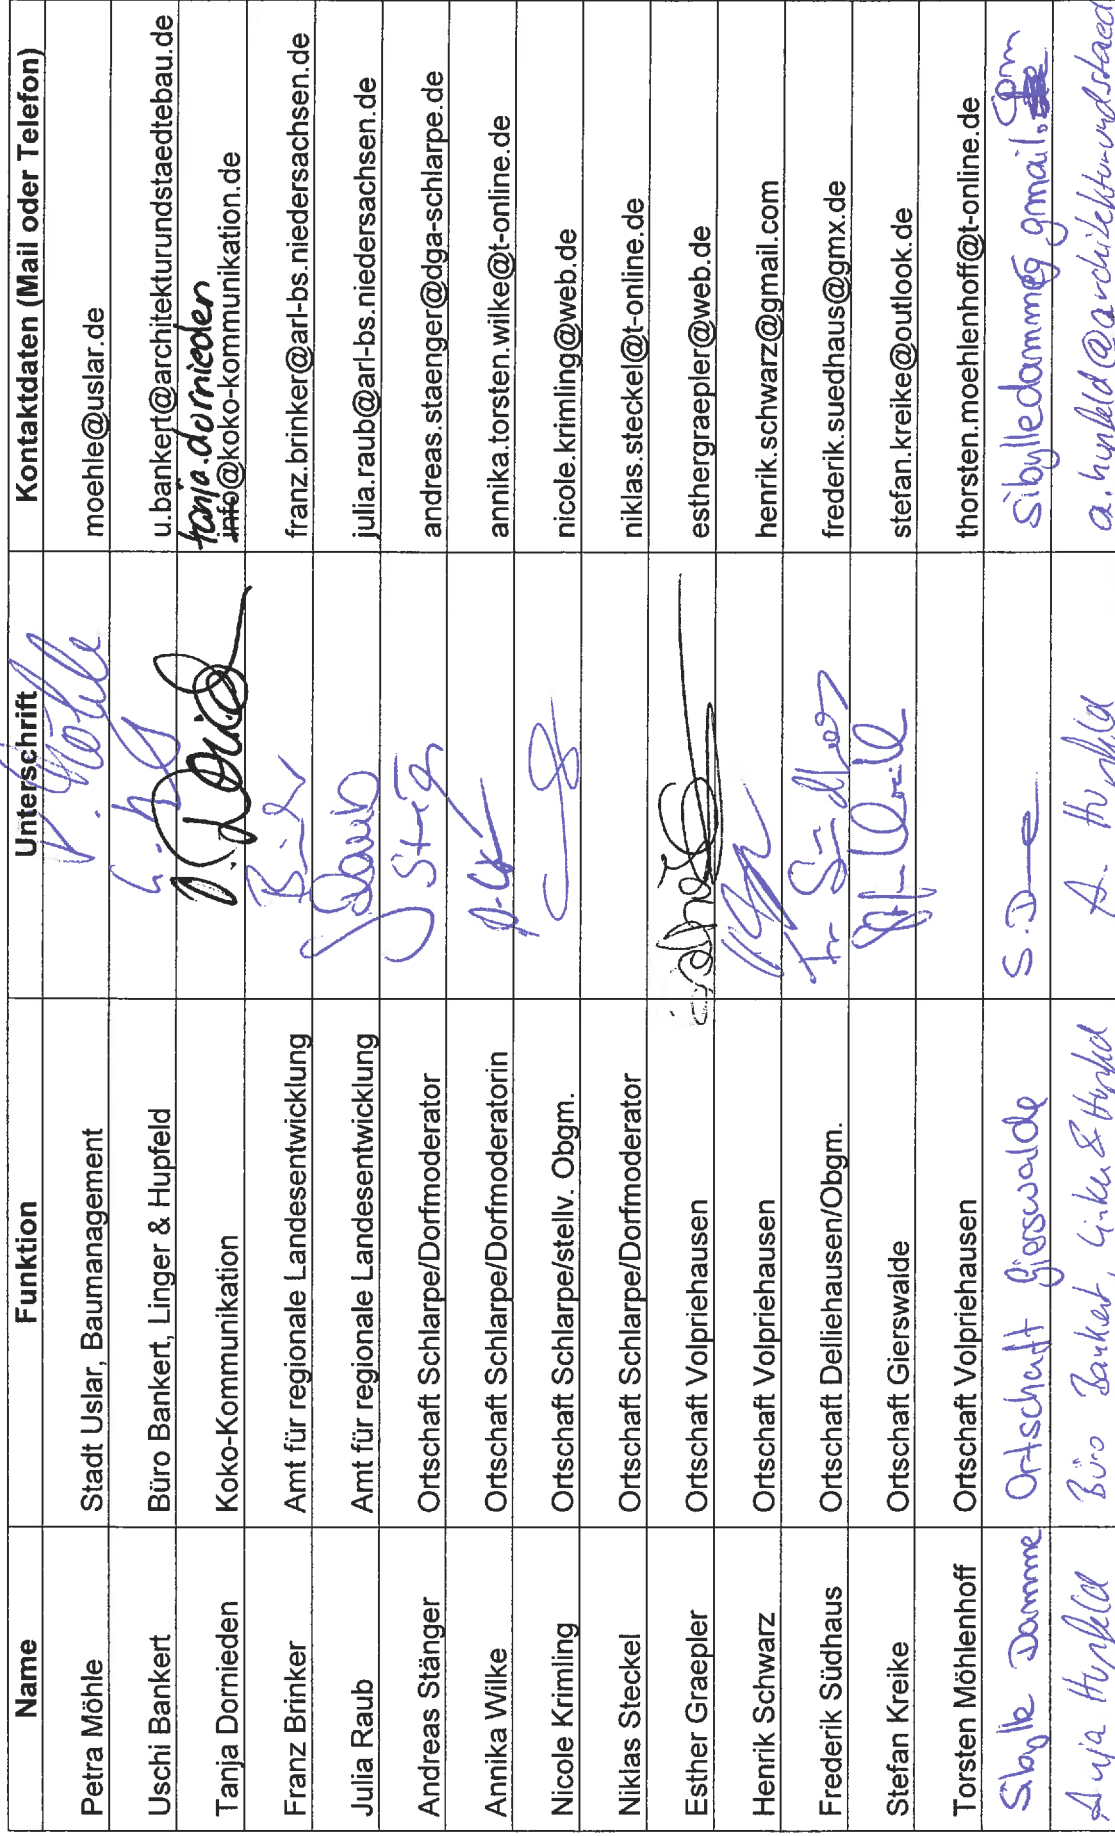 Name Funktion Unterschrift Kontaktdaten (Mail oder Telefon)
Petra Möhle Stadt Uslar, Baumanagement P. Möhle moehle@uslar.de
Uschi Bankert Büro Bankert, Linger & Hupfeld u.bankert@architekturundstaedtebau.de
tanja.dornieden
Tanja Dornieden Koko-Kommunikation info@koko-kommunikation.de
Franz Brinker Amt für regionale Landesentwicklung franz.brinker@arl-bs.niedersachsen.de
Julia Raub Amt für regionale Landesentwicklung Raub julia.raub@arl-bs.niedersachsen.de
Andreas Stänger Ortschaft Schlarpe/Dorfmoderator andreas.staenger@dga-schlarpe.de
Annika Wilke Ortschaft Schlarpe/Dorfmoderatorin annika.torsten.wilke@t-online.de
Nicole Krimling Ortschaft Schlarpe/stellv. Obgm. nicole.krimling@web.de
Niklas Steckel Ortschaft Schlarpe/Dorfmoderator niklas.steckel@t-online.de
Esther Graepler Ortschaft Volpriehausen esthergraepler@web.de
Henrik Schwarz Ortschaft Volpriehausen henrik.schwarz@gmail.com
Frederik Südhaus Ortschaft Delliehausen/Obgm. frederik.suedhaus@gmx.de
Stefan Kreike Ortschaft Gierswalde stefan.kreike@outlook.de
Torsten Möhlenhoff Ortschaft Volpriehausen thorsten.moehlenhoff@t-online.de
Sibylle Damme Ortschaft Gierswalde S.D Sibylledamme@gmail.com
Anja Hupfeld Büro Bankert, Linker & Hupfeld A. Hupfeld a.hupfeld@architekturundstaed